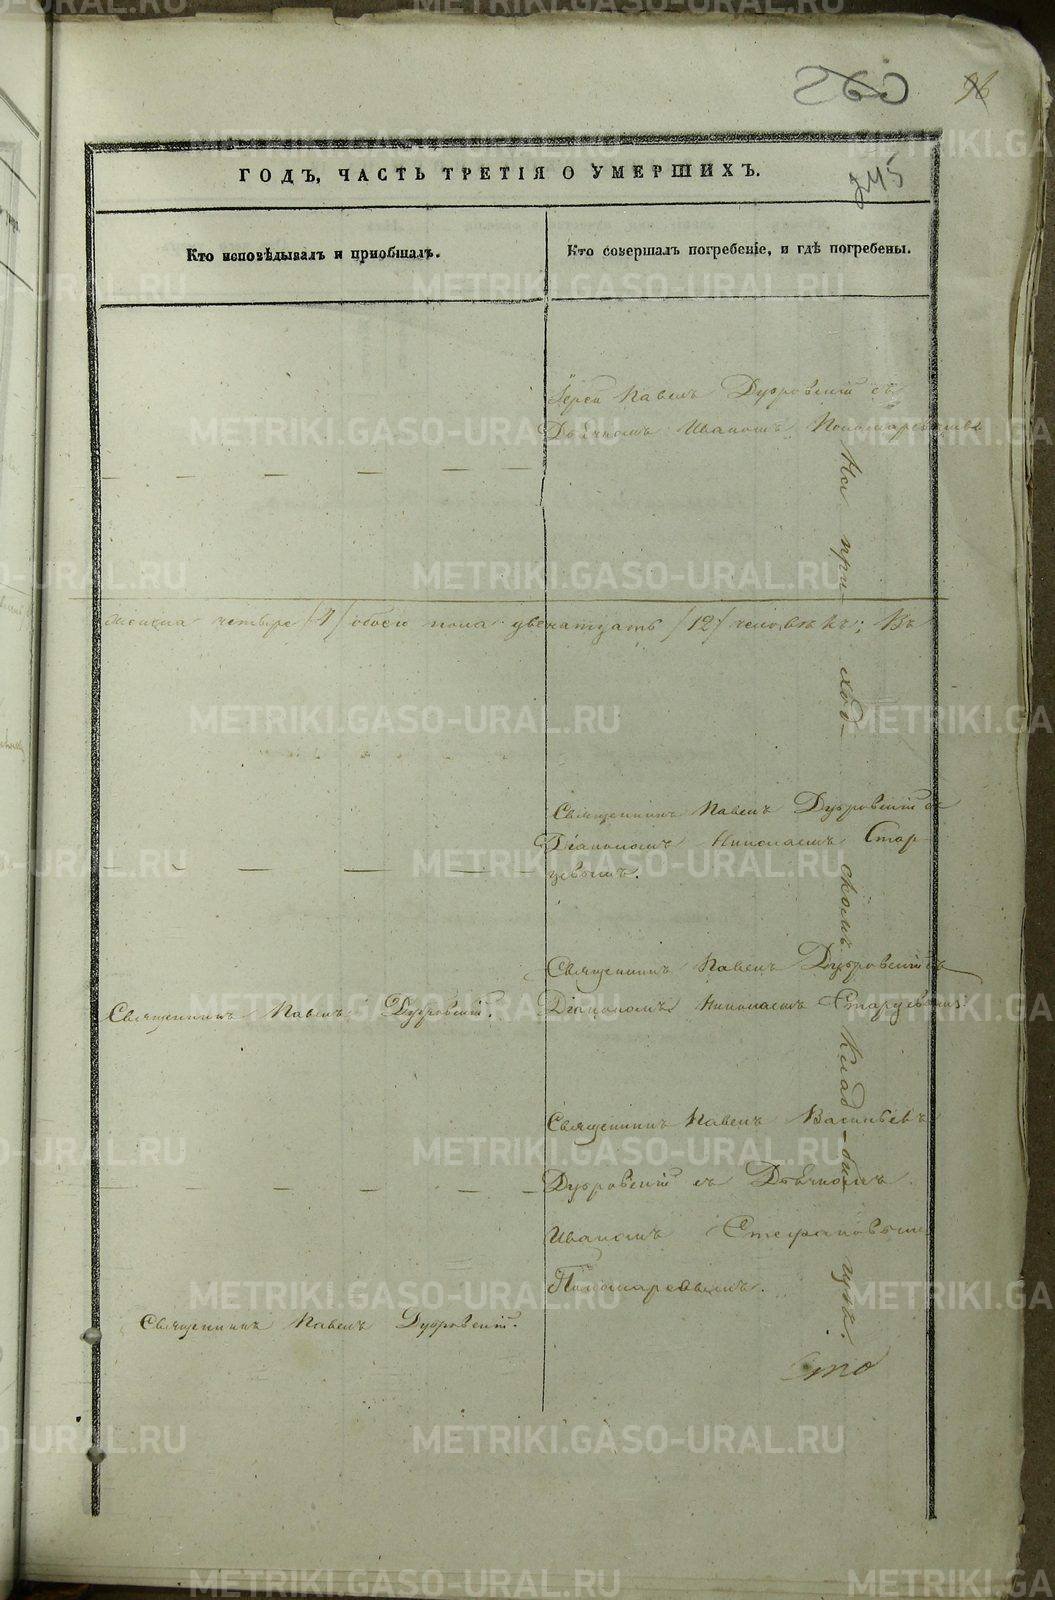 260
96
245
ГОДЪ, ЧАСТЬ ТРЕТІЯ О УМЕРШИХЪ.
Кто исповѣдывалъ и приобщалъ.
Кто совершалъ погребеніе, и гдѣ погребены.
Іерей Павелъ Дубровскій съ
Дьячкомъ Иваномъ Пономаревымъ
женска четыре /4/ обоего пола двенатцать /12/ человѣкъ; Въ
Священникъ Павелъ Дубровскій съ
Діакономъ Николаемъ Стар-
цевымъ.
Священникъ Павелъ Дубровскій съ
Діакономъ Николаемъ Старцевымъ
Священникъ Павелъ Дубровскій.
Священникъ Павелъ Васильевъ
Дубровскій съ Дьячкомъ
Иваномъ Стефановымъ
Пономаревымъ.
Священникъ Павелъ Дубровскій.
На при- ход- скомъ клад- би-
METRIKI.GASO-URAL.RU